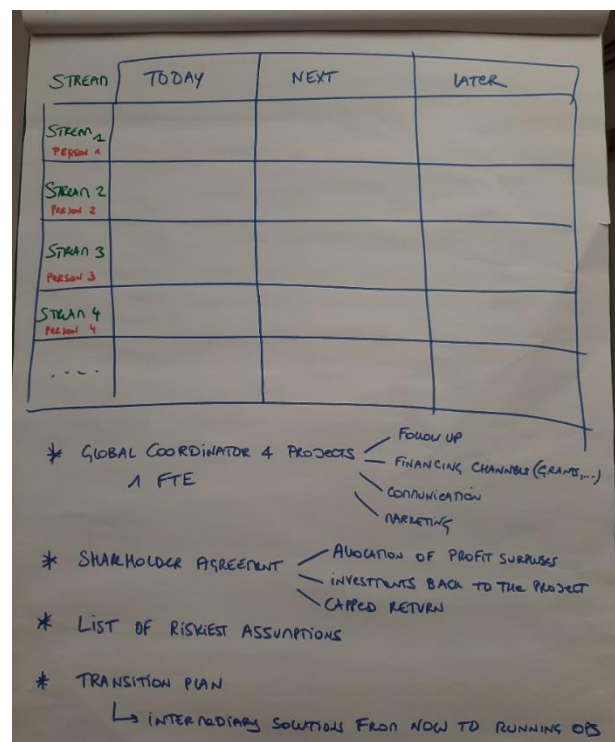 STREAM TODAY NEXT LATER
STREAM 1
PERSON 1
STREAM 2
PERSON 2
STREAM 3
PERSON 3
STREAM 4
PERSON 4
.....
* GLOBAL COORDINATOR 4 PROJECTS
1 FTE
FOLLOW UP
FINANCING CHANNELS (GRANTS,...)
COMMUNICATION
MARKETING
* SHAREHOLDER AGREEMENT
ALLOCATION OF PROFIT SURPLUSES
INVESTMENTS BACK TO THE PROJECT
CAPPED RETURN
* LIST OF RISKIEST ASSUMPTIONS
* TRANSITION PLAN
↳ INTERMEDIARY SOLUTIONS FROM NOW TO RUNNING OPS